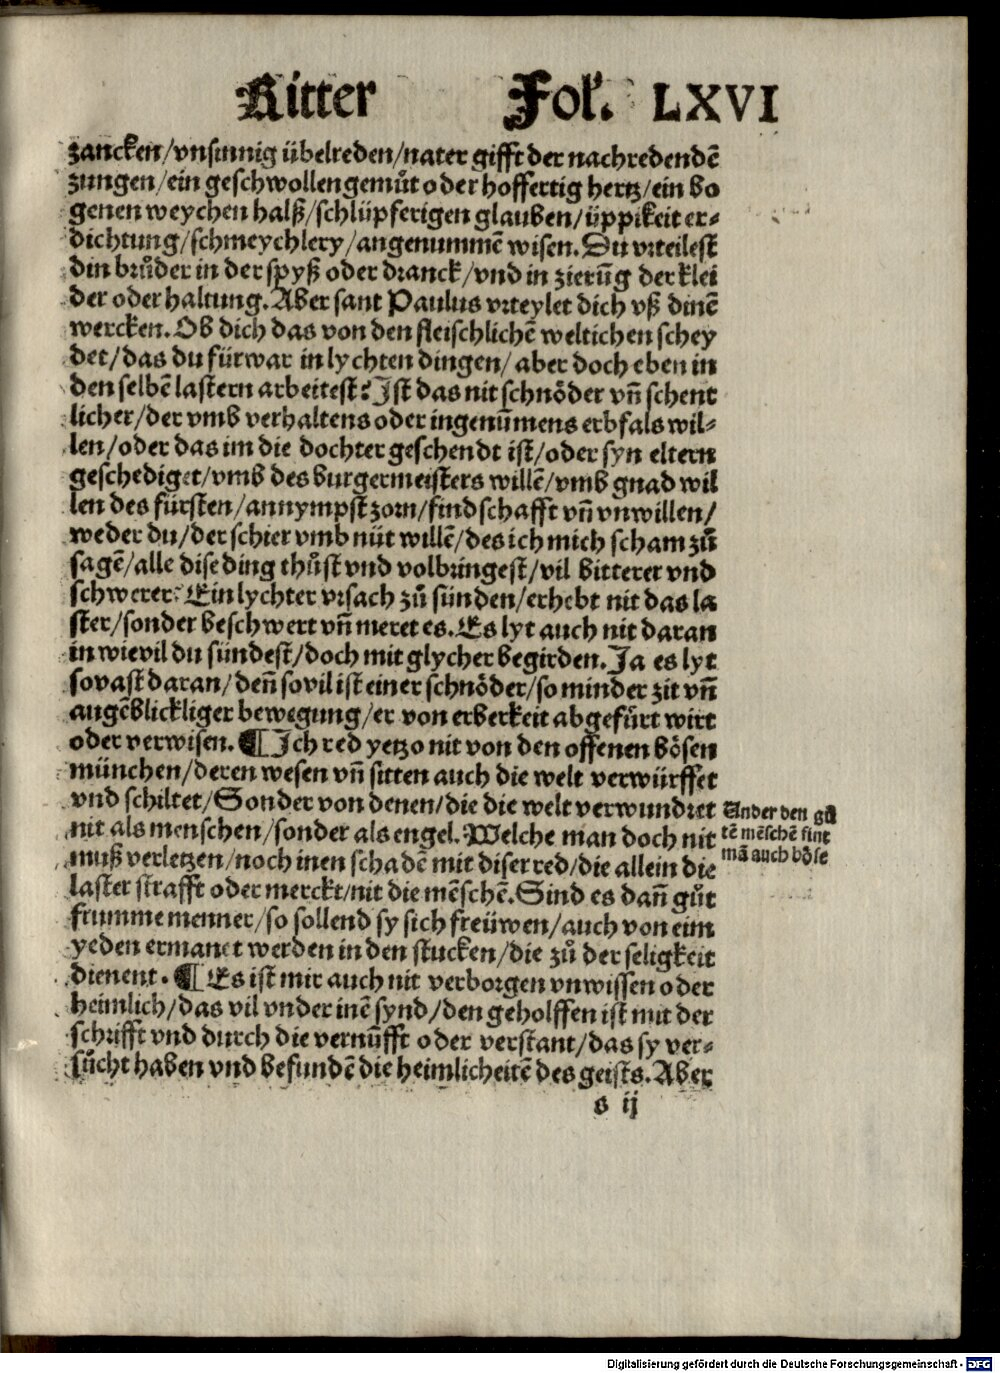 Ritter Fol. LXVI
zancken/vnsinnig übelreden/nater gifft der nachredendē
zungen/ein geschwollen gemůt oder hoffertig hertz/ein bo
genen weychen halß/schlüpferigen glauben/üppikeit er-
dichtung/schmeychlery/angenummē wisen. Du vrteilest
din brůder in der spyß oder dranck/vnd in zierūg der klei
der oder haltung. Aber sant Paulus vrteylet dich vß dinē
wercken. Ob dich das von den fleischlichē weltichen schey
det/das du fürwar in lychten dingen/aber doch eben in
den selbē lastern arbeitest? Ist das nit schnöder vn̄ schent
licher/der vmb verhaltens oder ingenūmens erbfals wil-
len/oder das im die dochter geschendt ist/oder syn eltern
geschediget/vmb des burgermeisters willē/vmb gnad wil
len des fürsten/annympst zorn/findschafft vn̄ vnwillen/
weder du/der schier vmb nüt willē/des ich mich scham zů
sagē/alle dise ding thůst vnd volbringest/vil bitterer vnd
schwerer? Ein lychter vrsach zů sünden/erhebt nit das la
ster/sonder beschwert vn̄ meret es. Es lyt auch nit daran
in wievil du sündest/doch mit glycher begirden. Ja es lyt
so vast daran/den̄ sovil ist einer schnöder/so minder zit vn̄
augēblickliger bewegung/er von erberkeit abgefürt wirt
oder verwisen. ¶ Ich red yetzo nit von den offenen bösen
münchen/deren wesen vn̄ sitten auch die welt verwürffet
vnd schiltet/Sonder von denen/die die welt verwundret
nit als menschen/sonder als engel. Welche man doch nit
muß verletzen/noch inen schadē mit diser red/die allein die
laster strafft oder merckt/nit die mēschē. Sind es dan̄ gůt
frumme menner/so sollend sy sich freüwen/auch von eim
yeden ermanet werden in den stucken/die zů der seligkeit
dienent. ¶ Es ist mir auch nit verborgen vnwissen oder
heimlich/das vil vnder inē synd/den geholffen ist mit der
schrifft vnd durch die vernūfft oder verstant/das sy ver-
sůcht haben vnd befundē die heimlicheitē des geists. Aber
s ij
Under den gů
tē mēschē sint
mā auch böse
Digitalisierung gefördert durch die Deutsche Forschungsgemeinschaft - DFG